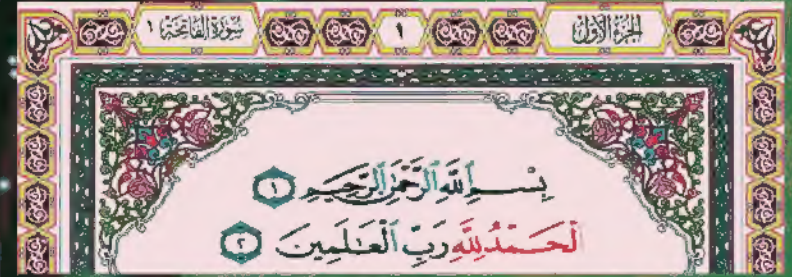 الجزء الأول ١ سورة الفاتحة ١
بِسْمِ ٱللَّهِ ٱلرَّحْمَٰنِ ٱلرَّحِيمِ ١
ٱلْحَمْدُ لِلَّهِ رَبِّ ٱلْعَٰلَمِينَ ٢